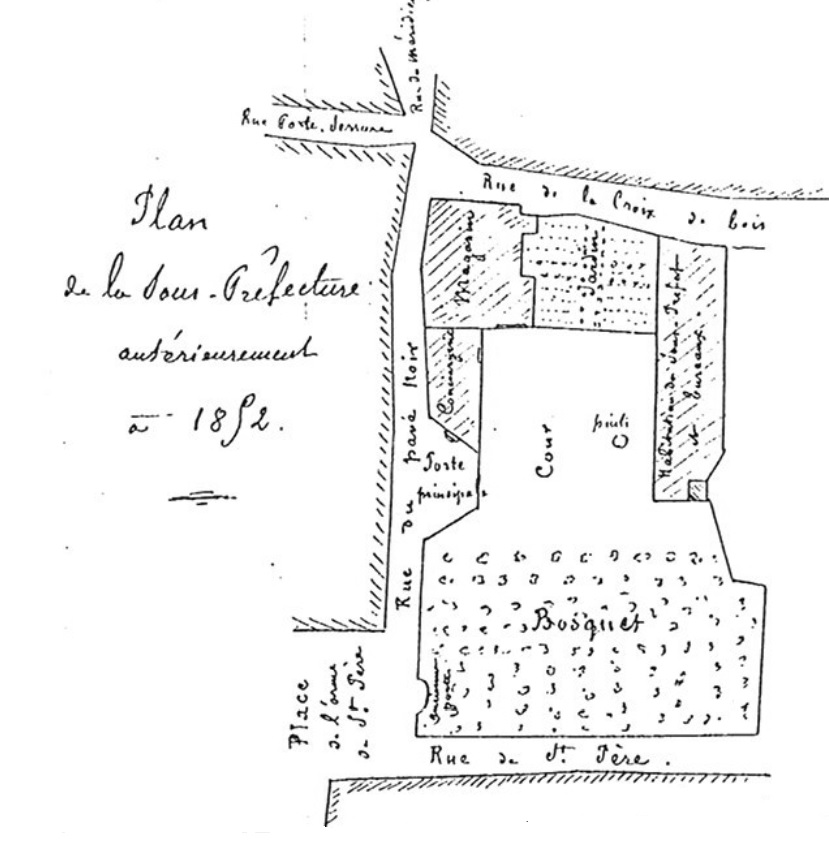 Rue du méridie
Rue Porte
Rue de la Croix de bois
Plan
de la Sous-Préfecture
antérieurement
à 1852.
Magasin
Jardin
Concierge
Habitation du Sous-Préfet
et bureaux
Cour
puits
Porte
principale
Rue du pavé Noir
Bosquet
Ancienne
porte
Place
de l'orme
de St. Père
Rue de St. Père.